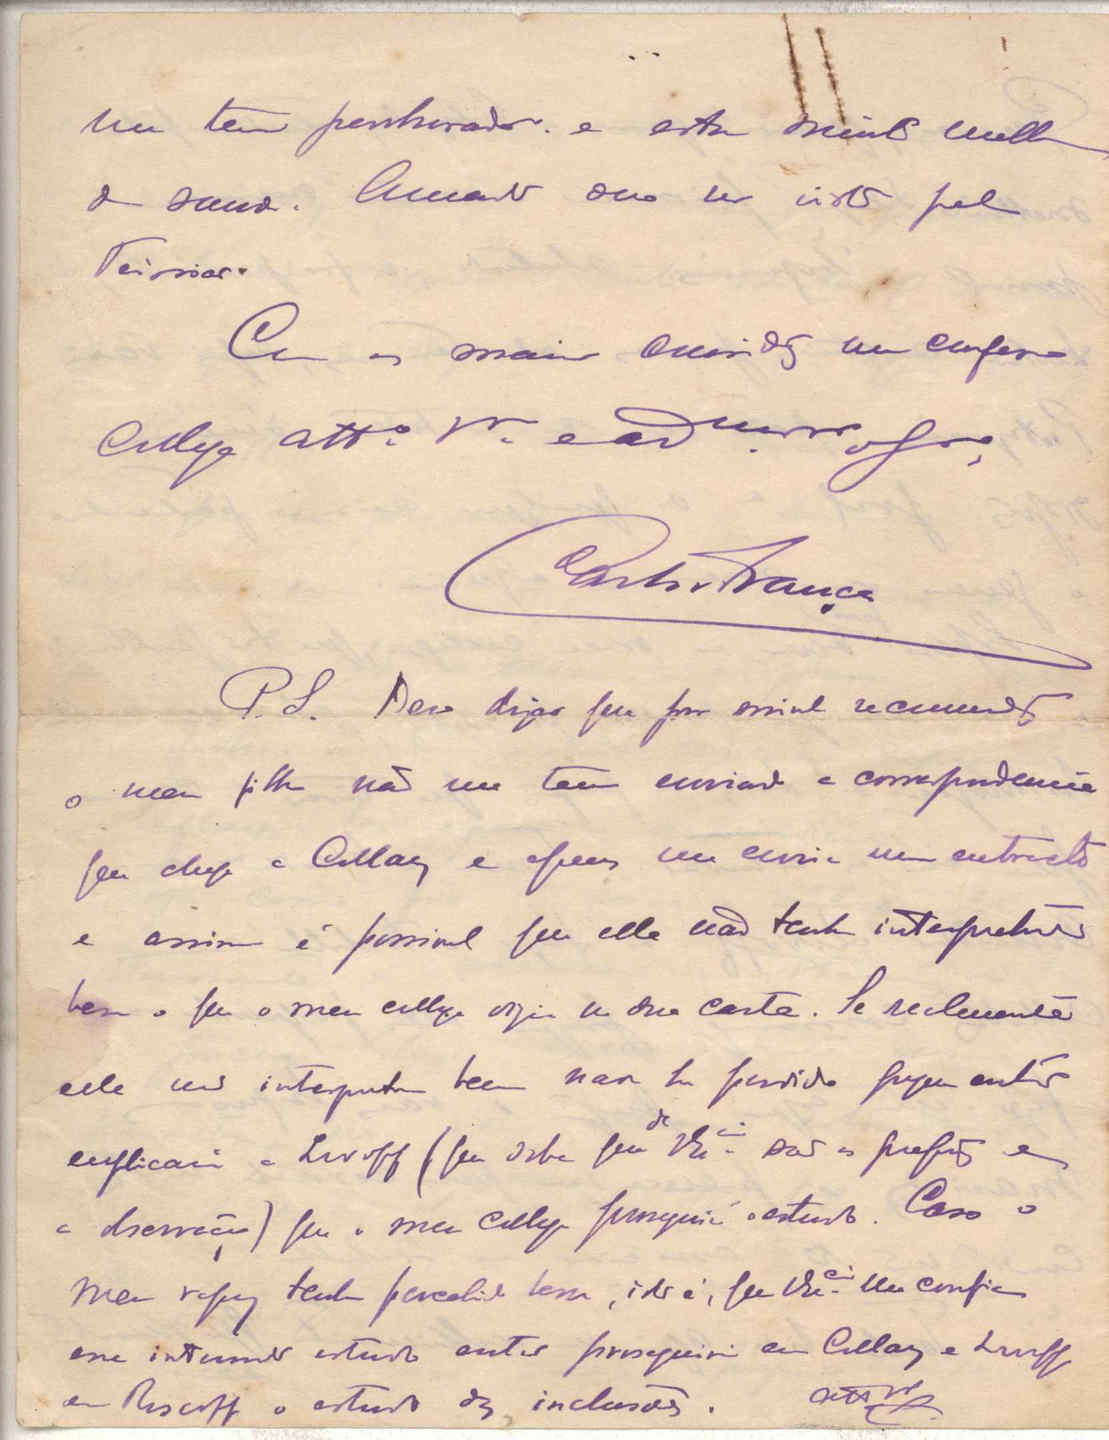 me tem penhorado. e estou muito melhor
de saude. Amanhã vou ser visto pelo
Teissier.
Com os mais me confesso
Collega attº Vr. e admirador
Carlos França
P.S. Devo dizer que por
o meu filho não me tem enviado a correspondencia
que chega a Collares e apenas me envia um extracto
e assim é possivel que elle não tenha interpretado
bem o que o meu collega dizia na sua carta. Se realmente
elle não interpretou bem nao ha perdido porque então
explicarei a Lwoff (que sabe que de V. Ex.cia são as preparações e
a observação) que o meu collega proseguirá o estudo. Caso o
meu rapaz tenha percebido bem, isto é, que V. Ex.cia me confia
esse estudo então proseguirei em Collares e Lwoff
em Roscoff o estudo das inclusões.